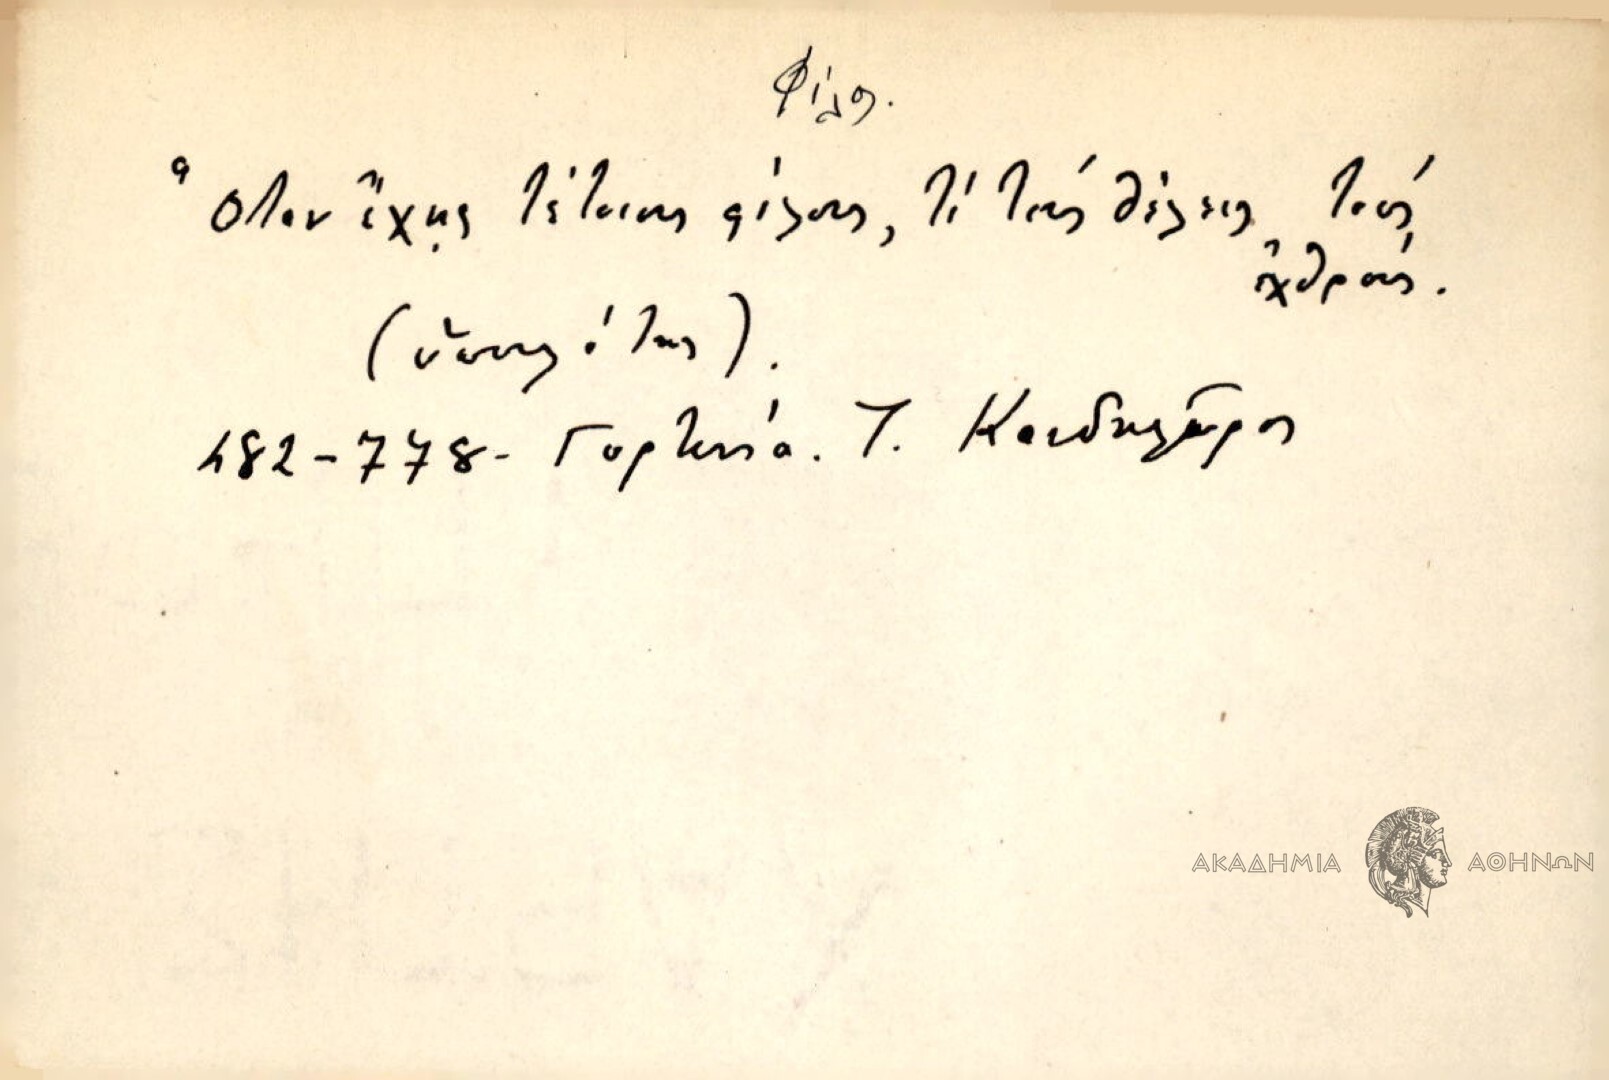 Φίλος.
Ὅταν ἔχῃς τέτοιους φίλους, τί τούς θέλεις τούς
ἐχθρούς.
(ὕπουλότης).
482-778- Γορτυνία. Τ. Κανδηλῶρος
ΑΚΑΔΗΜΙΑ ΑΘΗΝΩΝ